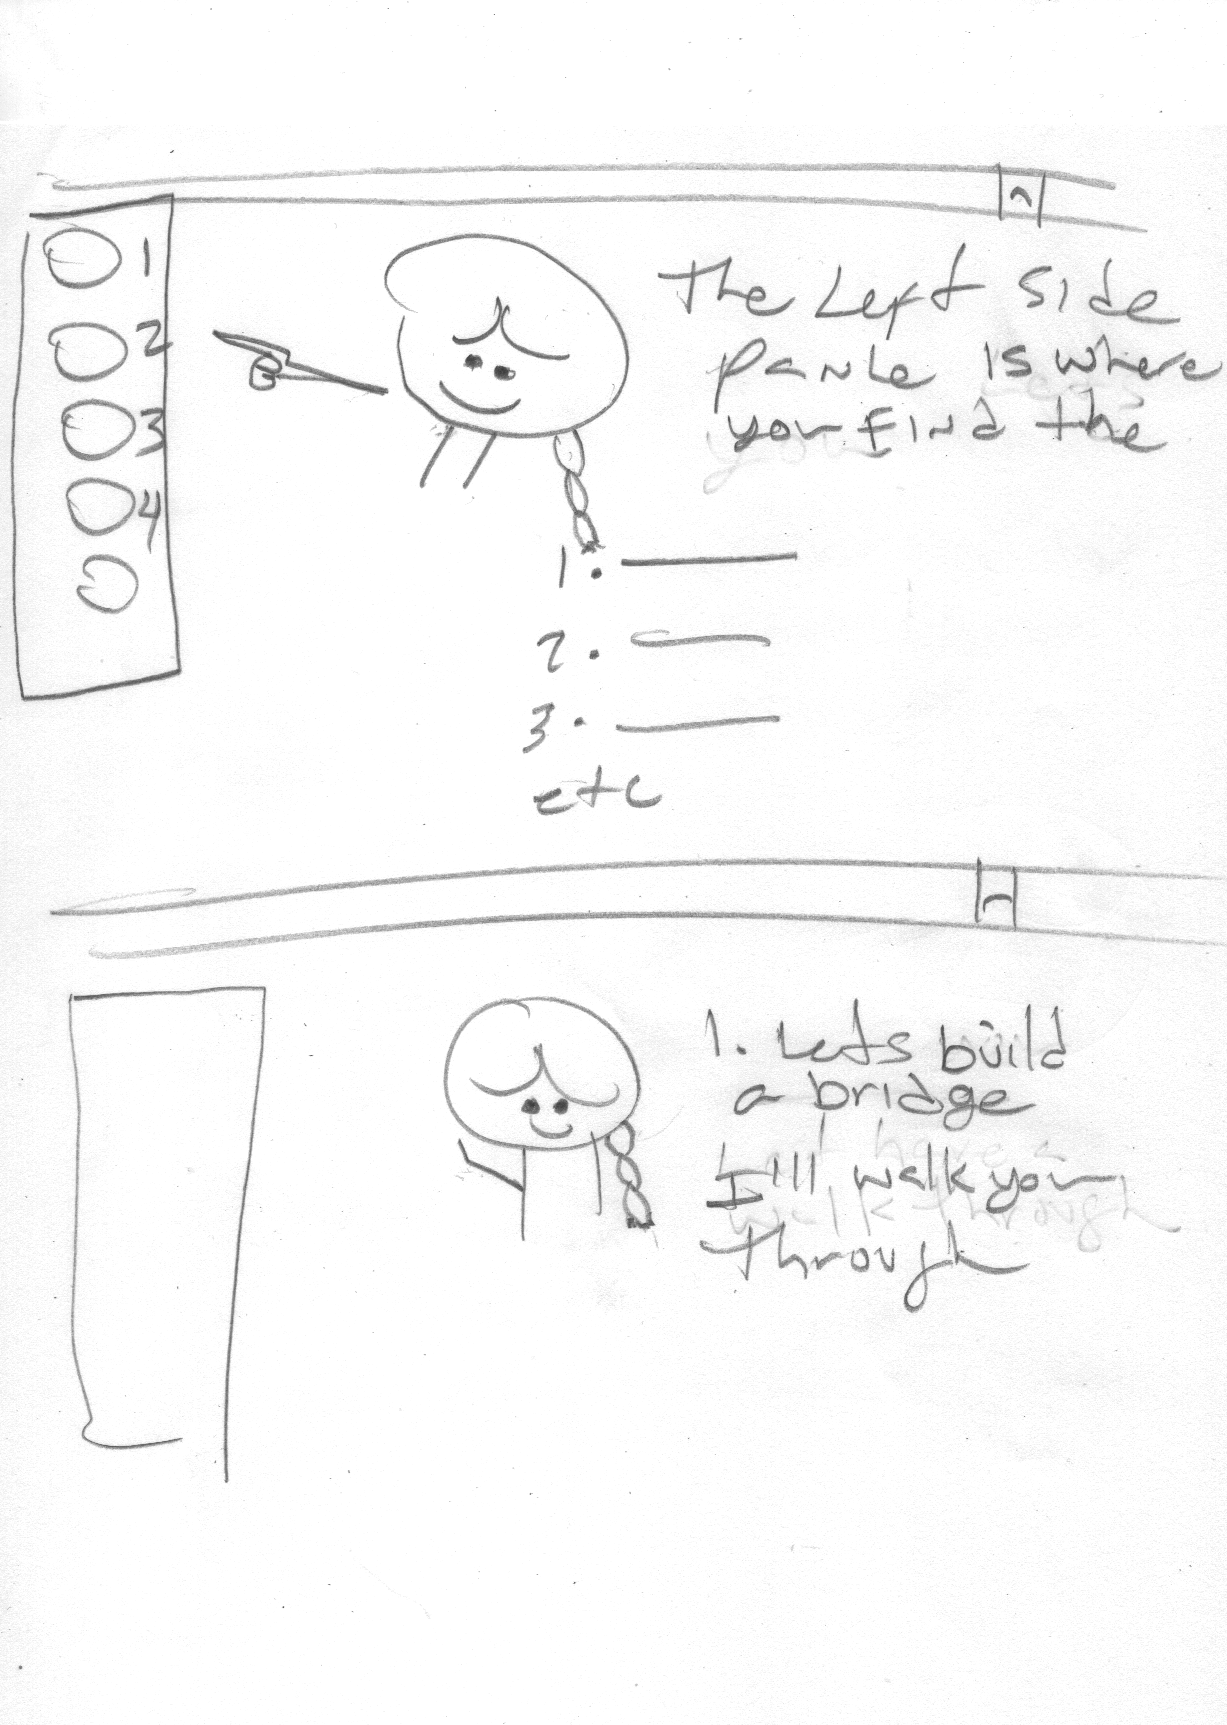 1
2
3
4
The Left side
panle is where
you find the
1.
2.
3.
etc
1. Lets build
a bridge
I'll walk you
through